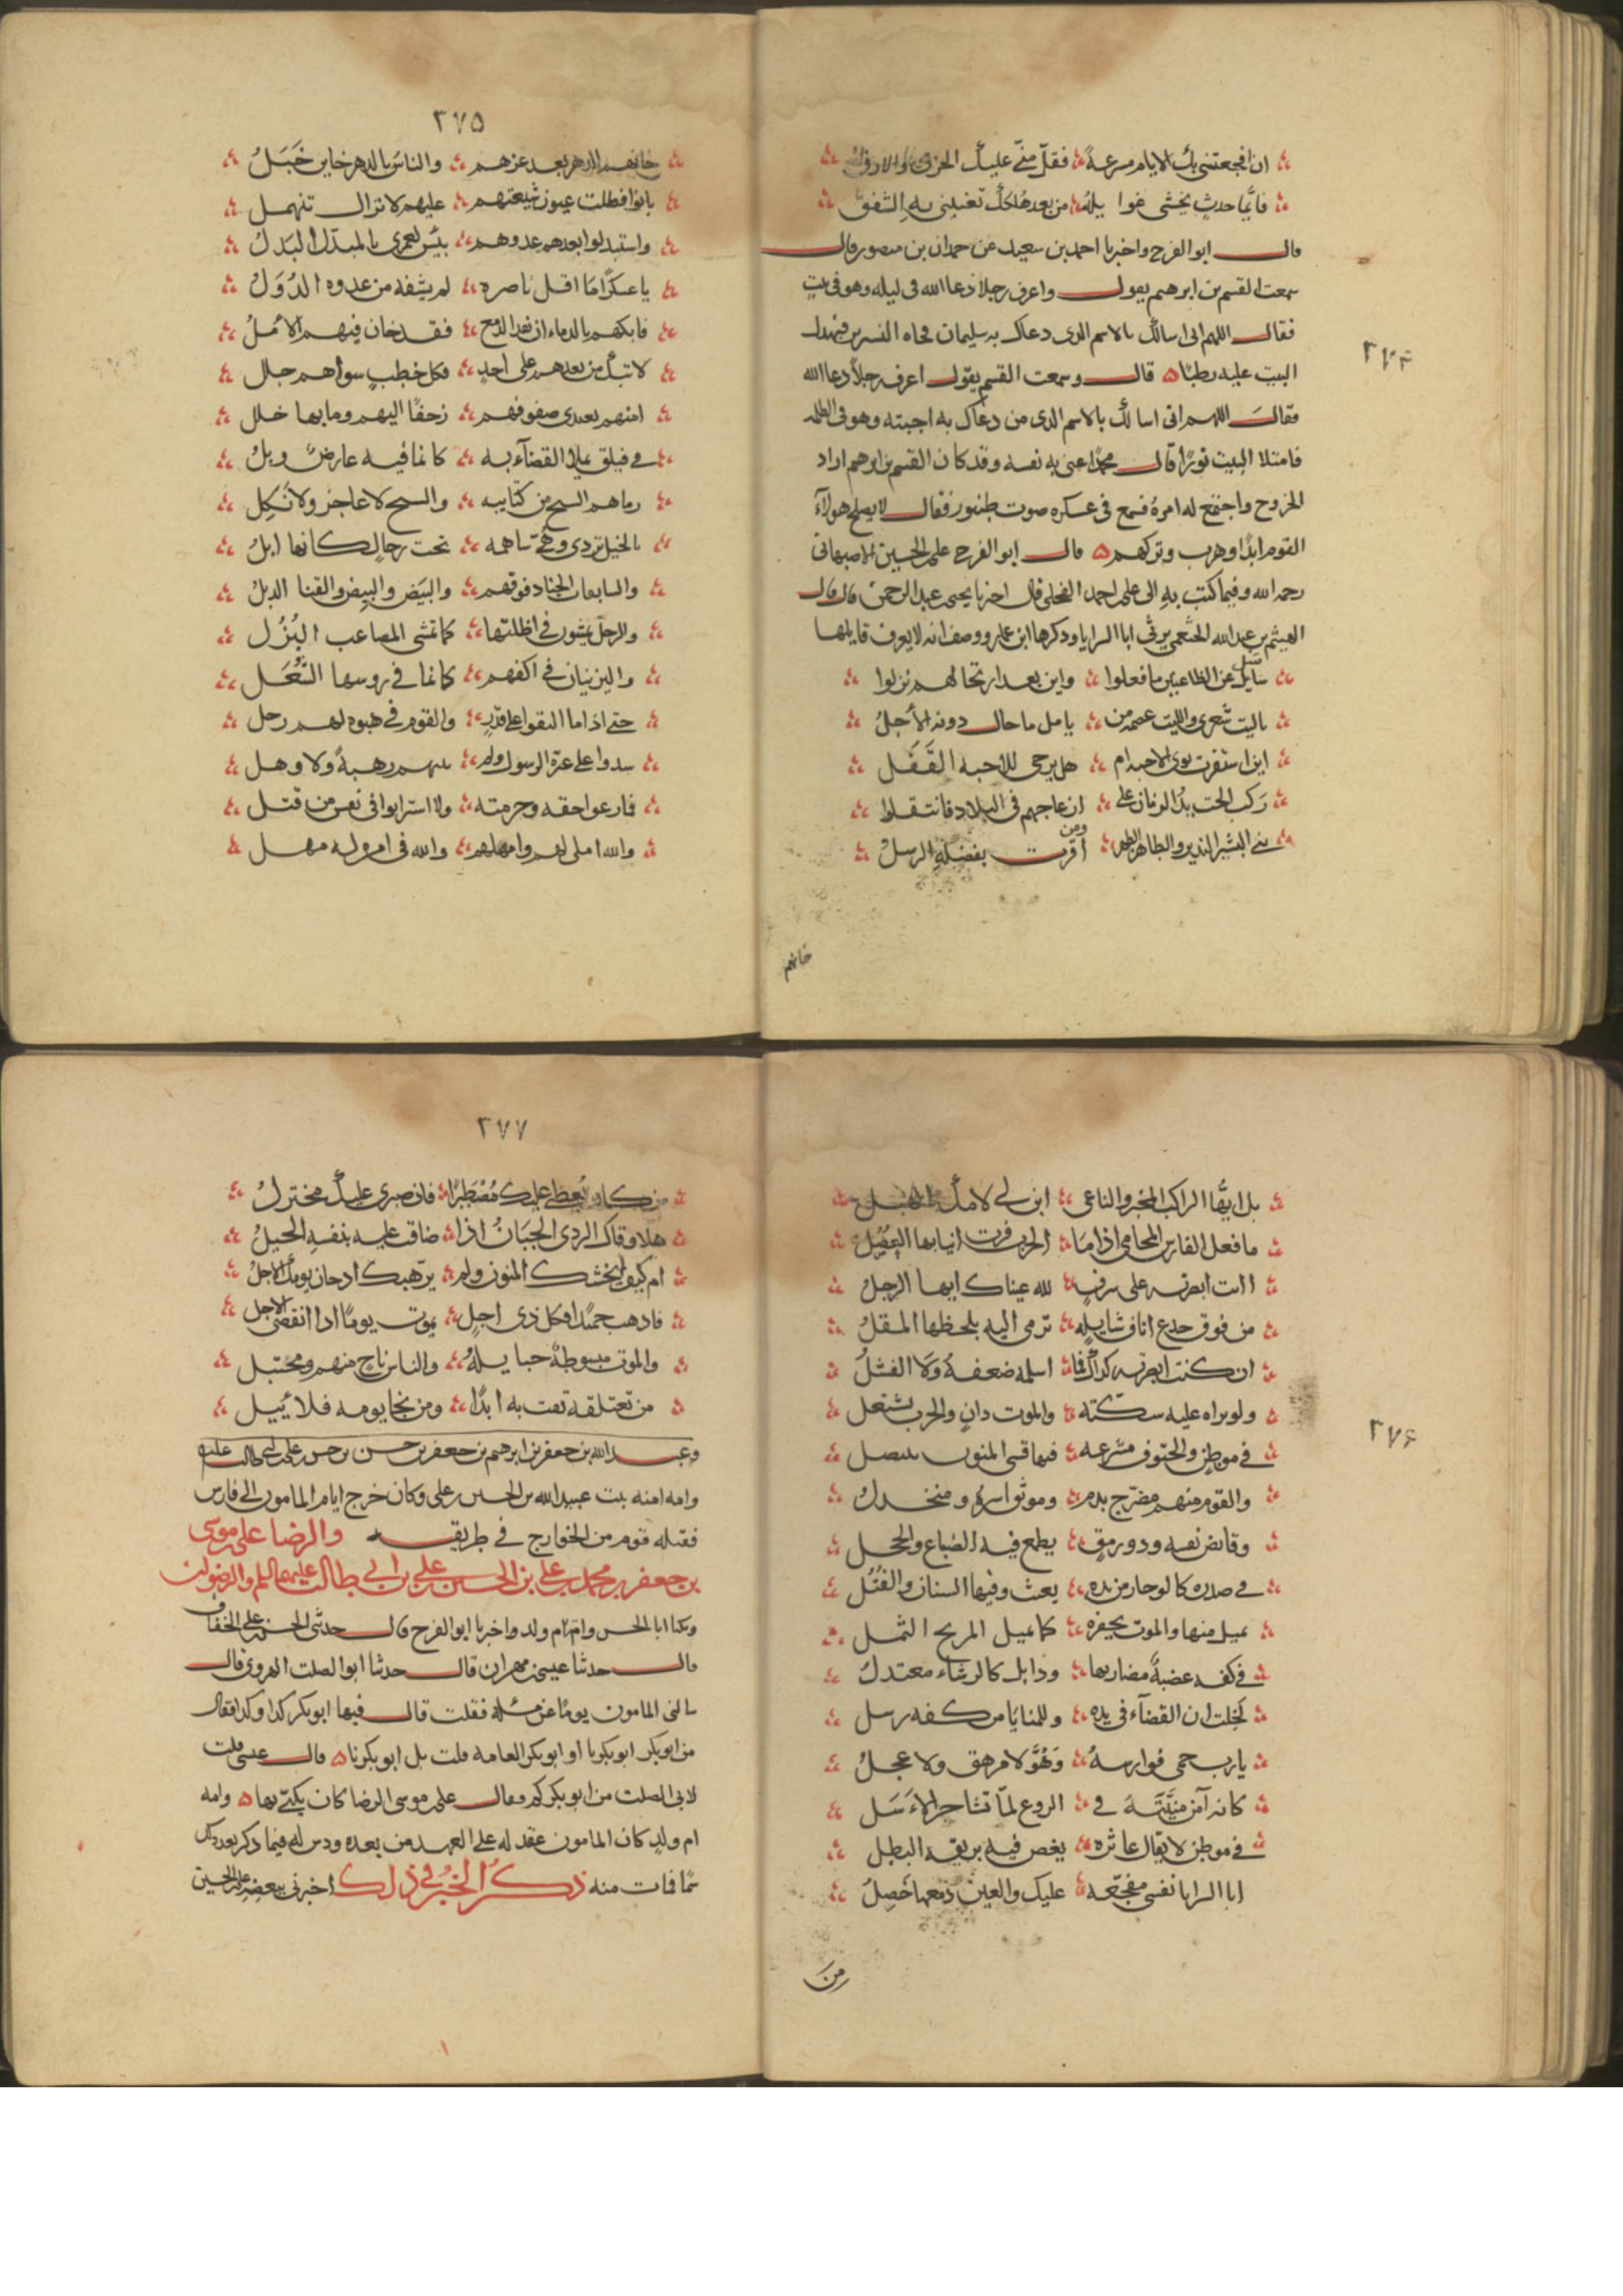 ٢٧٤
ان افجعتني بك الايام مسرعة فقل مني عليك الحزن والارق
فايما حدث يخشى غوايله من بعد هلكك تغنيني به الشفق
قال ابو الفرج واخبرنا احمد بن سعيد عن حمدان بن منصور قال
سمعت القسم بن ابرهيم يقول واعرف رجلا دعا الله في ليله وهو في بيت
فقال اللهم اني اسالك بالاسم الذي دعاك به سليمان فجاه السرير فتهدل
البيت عليه رطبا ه قال وسمعت القسم يقول اعرف رجلا دعا الله
فقال اللهم اني اسالك بالاسم الذي من دعاك به اجبته وهو في الظلمه
فامتلا البيت نورا قال محمد اعنى به نفسه وقد كان القسم بن ابرهيم اراد
الخروج واجتمع له امره فسمع في عسكره صوت طنبور فقال لا يصلح هولآء
القوم ابدا وهرب وتركهم ه قال ابو الفرج علي الحسين الاصبهاني
رحمه الله وفيما كتب به الى علي احمد العجلي قال اخبرنا يحيى عبد الرحمن قال قال
الهيثم بن عبد الله الخثعمي يرثي ابا السرايا وذكرها ابن عمار ووصف انه لا يعرف قايلها
سايل عن الظاعنين ما فعلوا واين بعد ارتحالهم نزلوا
ياليت شعري والليت عصمه من يامل ما حال دونه الأجل
اين استقرت نوى الاحبه ام هل يرجى للاحبه القفل
ركب الحت يد الزمان على ازعاجهم في البلاد فانتقلوا
بني البشير النذير والطاهر الطهر ومن اقرت بفضله الرسل
خانهم
٢٧٥
خانهم الدهر بعد عزهم والناس بالدهر خاين خبل
بانوا فظلت عيون شيعتهم عليهم لا تزال تنهمل
واستبدلوا بعدهم عدوهم بئس لعمري بالمبدل البدل
يا عسكرا ما اقل ناصره لم يشفه من عدوه الدول
فابكهم بالدماء ان نفد الدمع فقد خان فيهم الأمل
لا تبك من بعدهم على احد فكل خطب سواهم جلل
امنهم يعدى صفوفهم زحفا اليهم وما بها خلل
في فيلق يملا القضآء به كانما فيه عارض وبل
رماهم السيح من كتايبه والسيح لا عاجز ولا نكل
بالخيل تردي وهي ساهمه تحت رجال كانها ابل
والسابعات الجياد فوقهم والبيض والبيض والقنا الذبل
والرجل يمشون في اظلتها كما تمشى المصاعب البزل
واليزنيان في اكفهم كانما في روسها الشعل
حتى اذا ما التقوا على قدر والقوم في هبوه لهم زجل
سدوا على عترة الرسول ولم رهبة ولا وهل
فما رعوا حقه وحرمته ولا استرابوا في نفس من قتل
والله املى لهم وامهلهم والله في امره له مهل
٢٧٦
بل ايها الراكب المخبر والناعي ابن لي لامك الهبل
ما فعل الفارس المحامي اذا ما الحرب فرت انيابها العصل
اانت ابصرته على شرف لله عيناك ايها الرجل
من فوق جذع اناف شايله ترمي اليه بلحظها المقل
ان كنت ابصرته كذاك فما اسلمه ضعفه ولا الفشل
ولو تراه عليه شكته والموت دان والحرب تشتعل
في موطن والحتوف مشرعه فيها قسي المنون تتصل
والقوم منهم مضرج بدم وموثق اسره ومنجدل
وقائض نفسه وذو رمق يطمع فيه الضباع والحجل
في صدره كالوجار من يده يعث وفيها السنان والفتل
يميل منها والموت يحفزه كما يميل المرنح الثمل
في كفه عضبة مضاربها وذابل كالرشاء معتدل
لخلت ان القضآء في يده وللمنايا من كفه رسل
يا رب حمى فوارسه وهو لا مرهق ولا عجل
كانه آمن منيته في الروع لما تشاجر الأسل
في موطن لا يقال عاثره يغص فيه بريقه البطل
ابا السرايا نفسي مفجعه عليك والعين دمعها خضل
من
٢٧٧
من كان يعطي عليك مصطبرا فان صبري عليك مختزل
هلا وقاك الردى الجبان اذا ضاقت عليه بنفسه الحيل
ام كيف لم تخشك المنون ولم يرهبك اذ حان يومك الأجل
فاذهب حميدا فكل ذي اجل يموت يوما اذا انقضى الاجل
والموت مبسوطة حبايله والناس ناج منهم ومحتبل
من تعتلقه تفت به ابدا ومن نجا يومه فلا يئيل
وعبد الله بن جعفر بن ابرهيم بن جعفر بن حسن بن حسن بن علي بن ابي طالب عليه
وامه امنه بنت عبيد الله بن الحسين بن علي وكان خرج ايام المامون الى فارس
فقتله قوم من الخوارج في طريقه والرضا علي موسى
بن جعفر بن محمد بن علي بن الحسين علي بن ابي طالب عليهما السلم والرضوان
ويكنا ابا الحسن وامه ام ولد واخبرنا ابو الفرج قال حدثني الحسن علي الخفاف
قال حدثنا عيسى مهران قال حدثنا ابو الصلت الهروي قال
سالني المامون يوما عن مسئله فقلت قال فيها ابو بكر كذا وكذا فقال
من ابو بكر ابو بكرنا او ابو بكر العامه قلت بل ابو بكرنا ه قال عيسى قلت
لابي الصلت من ابو بكركم فقال علي موسى الرضا كان يكنى بها ه وامه
ام ولد كان المامون عقد له على العهد من بعده ودس له فيما ذكر بعد ذلك
سما فمات منه ذكر الخبر في ذلك اخبرني ببعضه علي الحسين